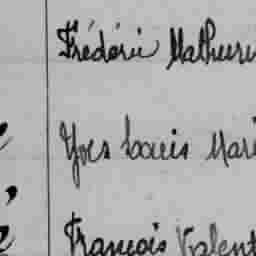 Frédéric Mathurin
Yves Louis Mari
François Valent